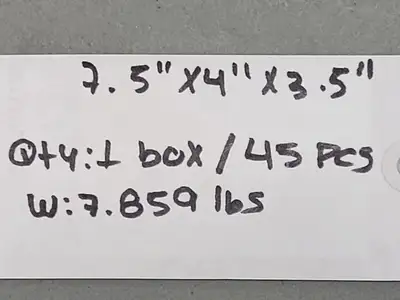 7.5"X4"X3.5"
Qty:1 box/45 Pcs
W:7.859 lbs